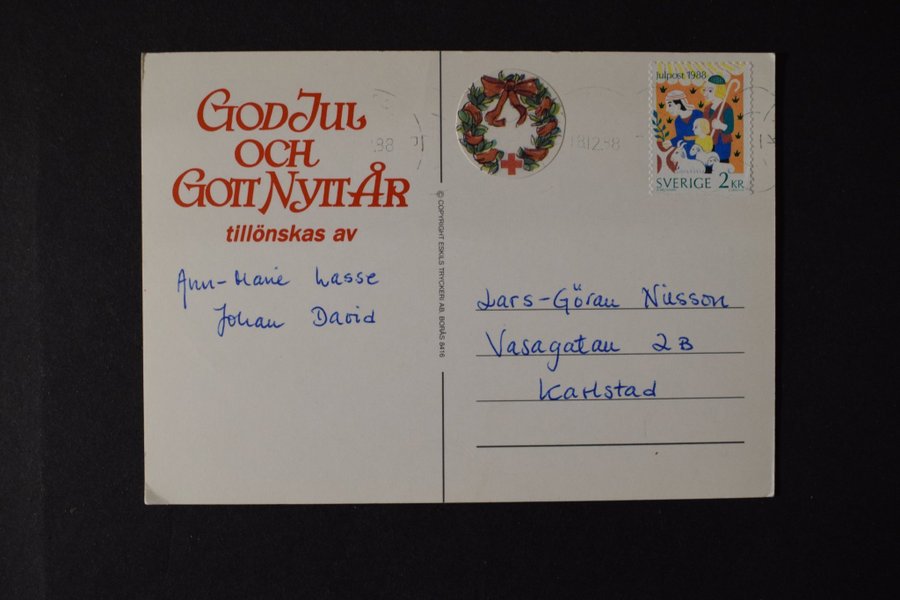 GOD JUL
OCH
GOTT NYTT ÅR
tillönskas av
Ann-Marie Lasse
Johan David
© COPYRIGHT ESKILS TRYCKERI AB, BORÅS 8416
Julpost 1988
SVERIGE 2 KR
Lars-Göran Nilsson
Vasagatan 2B
Karlstad